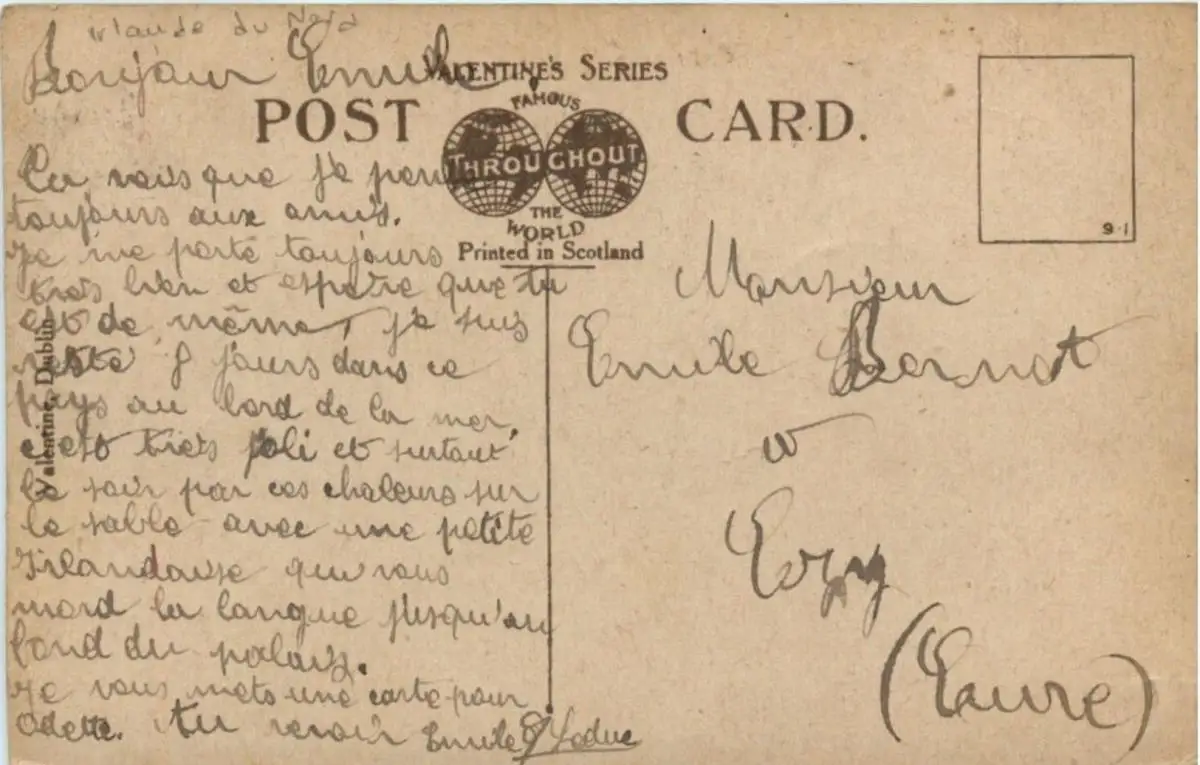 irlande du Nord
Bonjour Emile
VALENTINE'S SERIES
POST CARD.
FAMOUS
THROUGHOUT
THE
WORLD
Printed in Scotland
9·1
Valentine, Dublin
Tu vois que je pense
toujours aux amis.
Je me porte toujours
tres bien et espere que tu
est de même, je suis
resté 8 jours dans ce
pays au bord de la mer,
c'est tres joli et surtout
le soir par ces chaleurs sur
le sable avec une petite
Irlandaise qui vous
mord la langue jusqu'au
fond du palais.
Je vous mets une carte pour
Odette. Au revoir Emile Leduc
Monsieur
Emile Bernot
a
Ezy
(Eure)